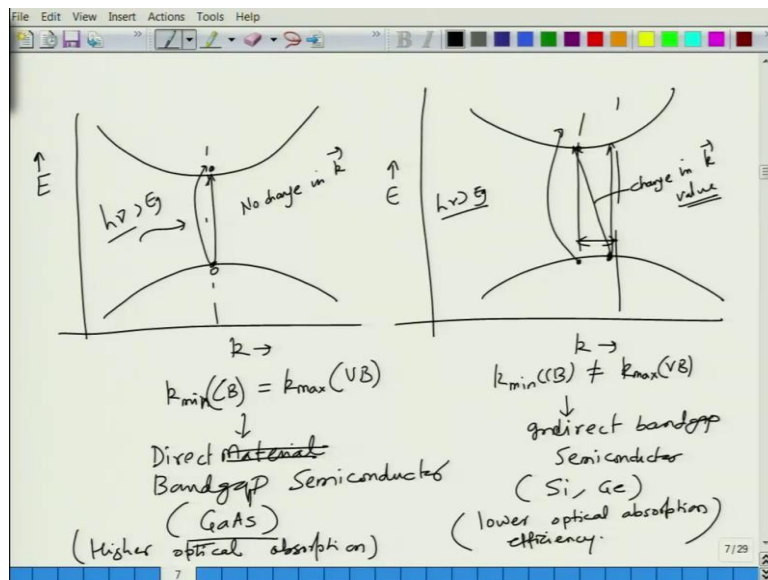 File Edit View Insert Actions Tools Help
B I
↑
E
hν>Eg
No change in k⃗
k →
kmin(CB) = kmax(VB)
↓
Direct Material
Bandgap Semiconductor
(GaAs)
(Higher optical absorption)
↑
E
hν>Eg
change in k⃗
value
k →
kmin(CB) ≠ kmax(VB)
↓
Indirect bandgap
Semiconductor
(Si, Ge)
(lower optical absorption
efficiency.)
7/29
7